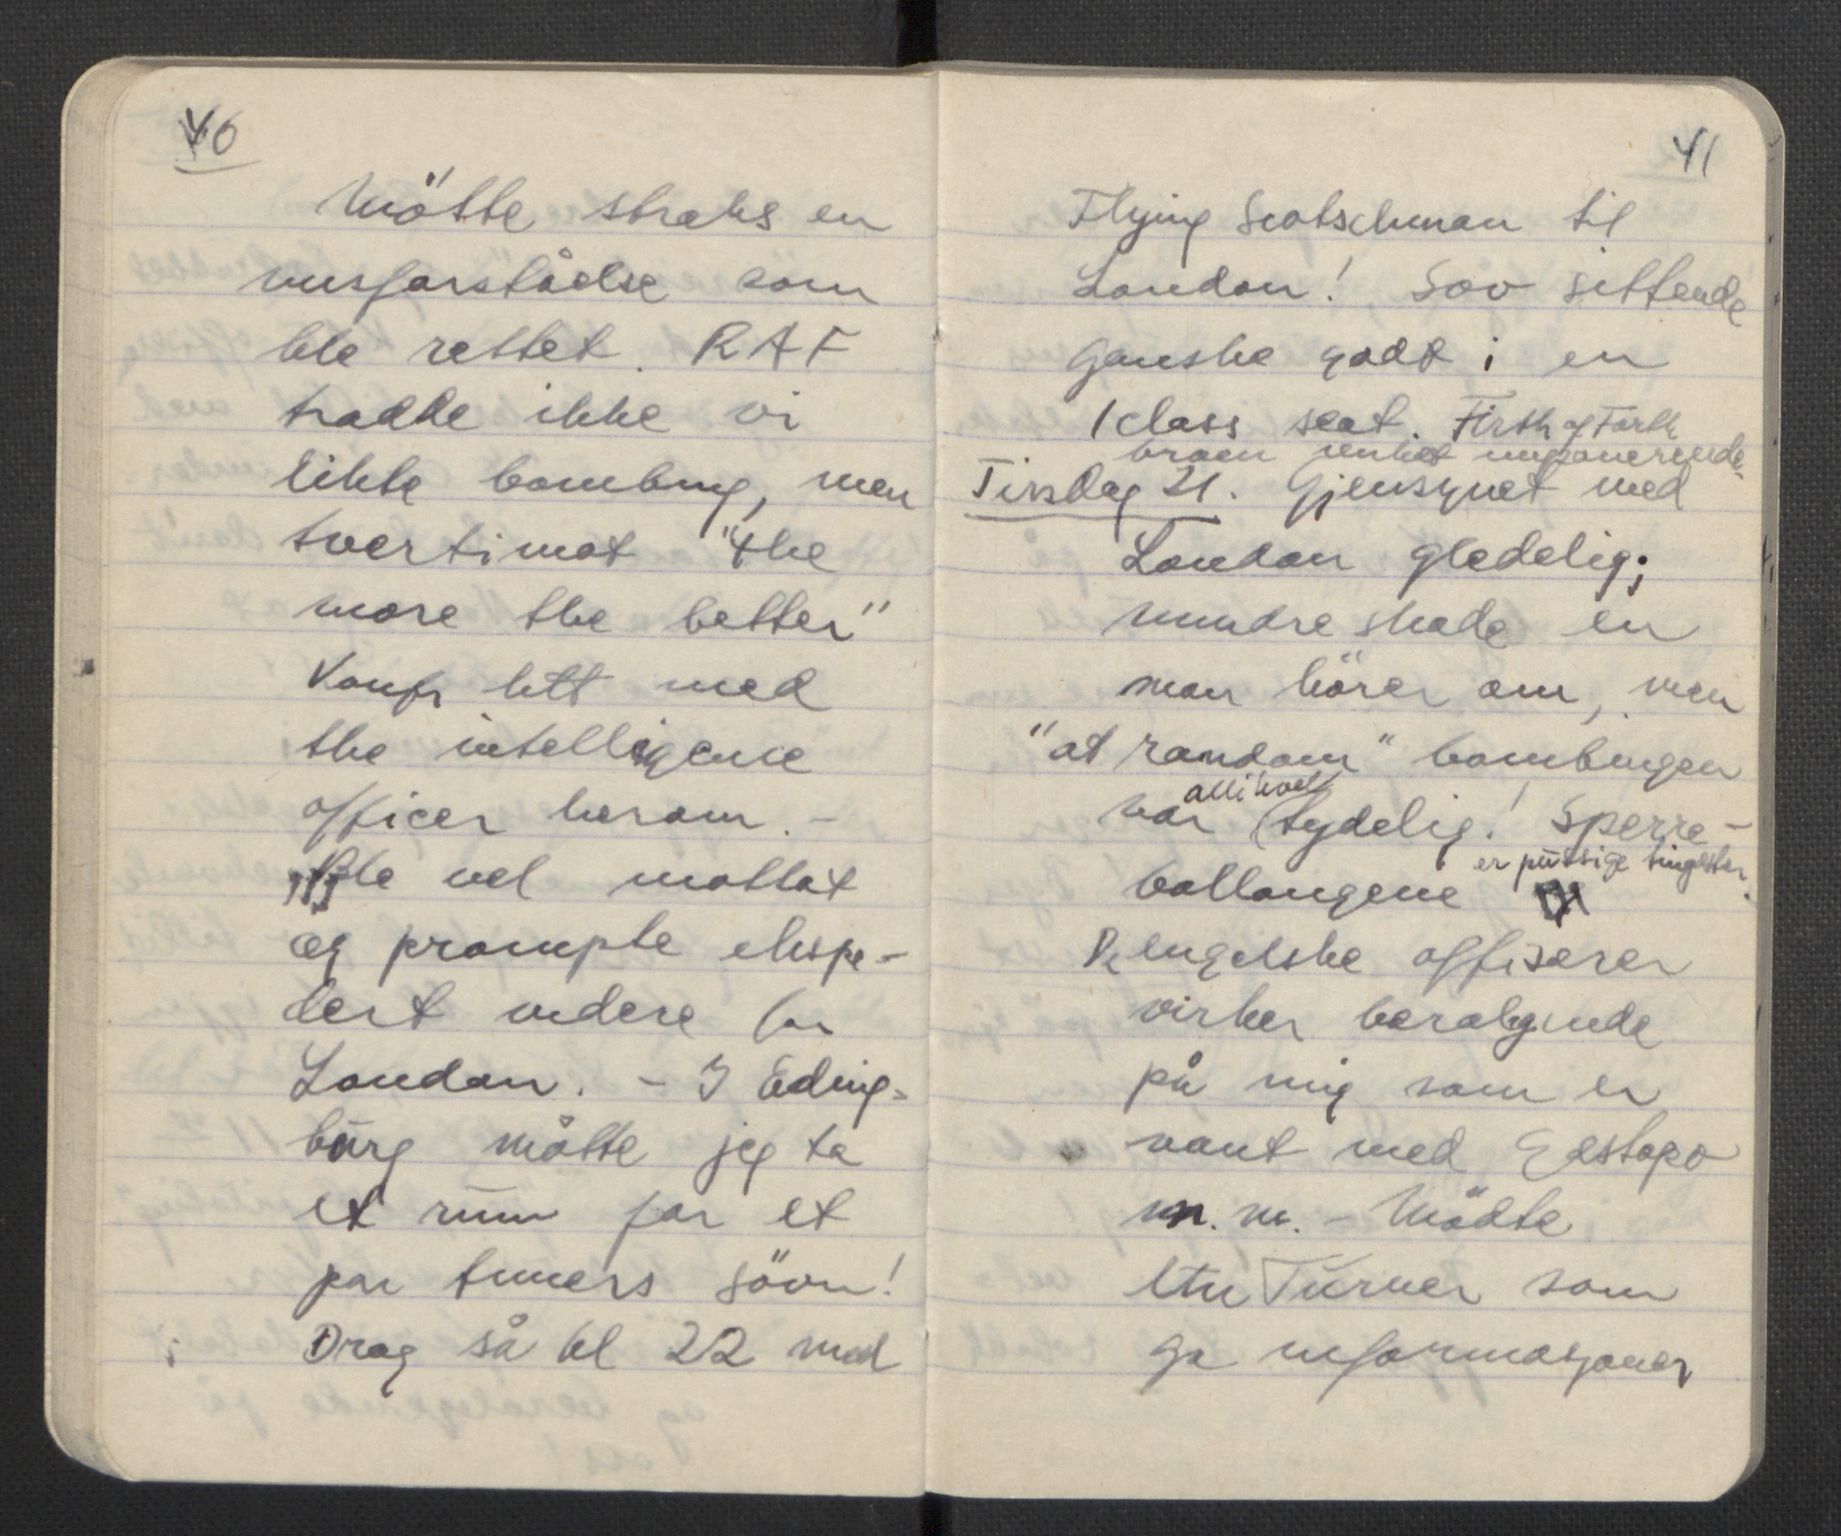 40
Mötte straks en
misforståelse som
ble rettet. RAF
trodde ikke vi
likte bombing, men
tvertimot "the
more the better"
Konfr litt med
the intelligence
officer herom. -
Ble vel mottat
og prompte ekspe-
dert videre for
London. - I Eding-
burg måtte jeg ta
et rum for et
par timers sövn!
Drog så kl 22 med
41
Flying Scotschman til
London! Sov sittende
ganske godt i en
1 class seat. Firth of Forth
broen imponerende.
Tirsdag 21. Gjensynet med
London gledelig;
mindre skade en
man hörer om, men
"at random" bombingen
var allikvel tydelig! Sperre-
ballongene er pussige tingester.
De engelske offiserer
virker beroligende
på mig som er
vant med Gestapo
m.m. - Mödte
Ltn Turner som
ga informasjoner